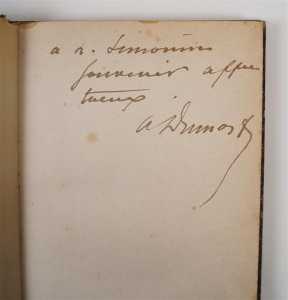 a L. Simonin
souvenir affec
tueux.
A Dumas f